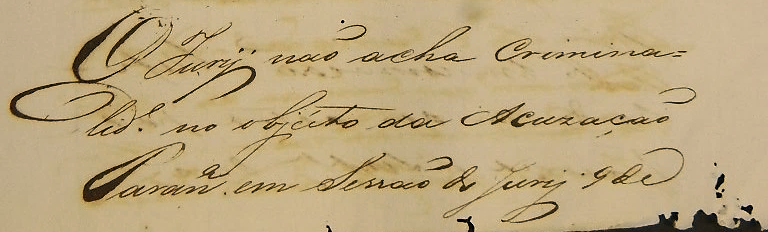 O Jury não acha Crimina=
lid.e no objécto da Acuzação
Paranã. em Sessão de Jury 9 de